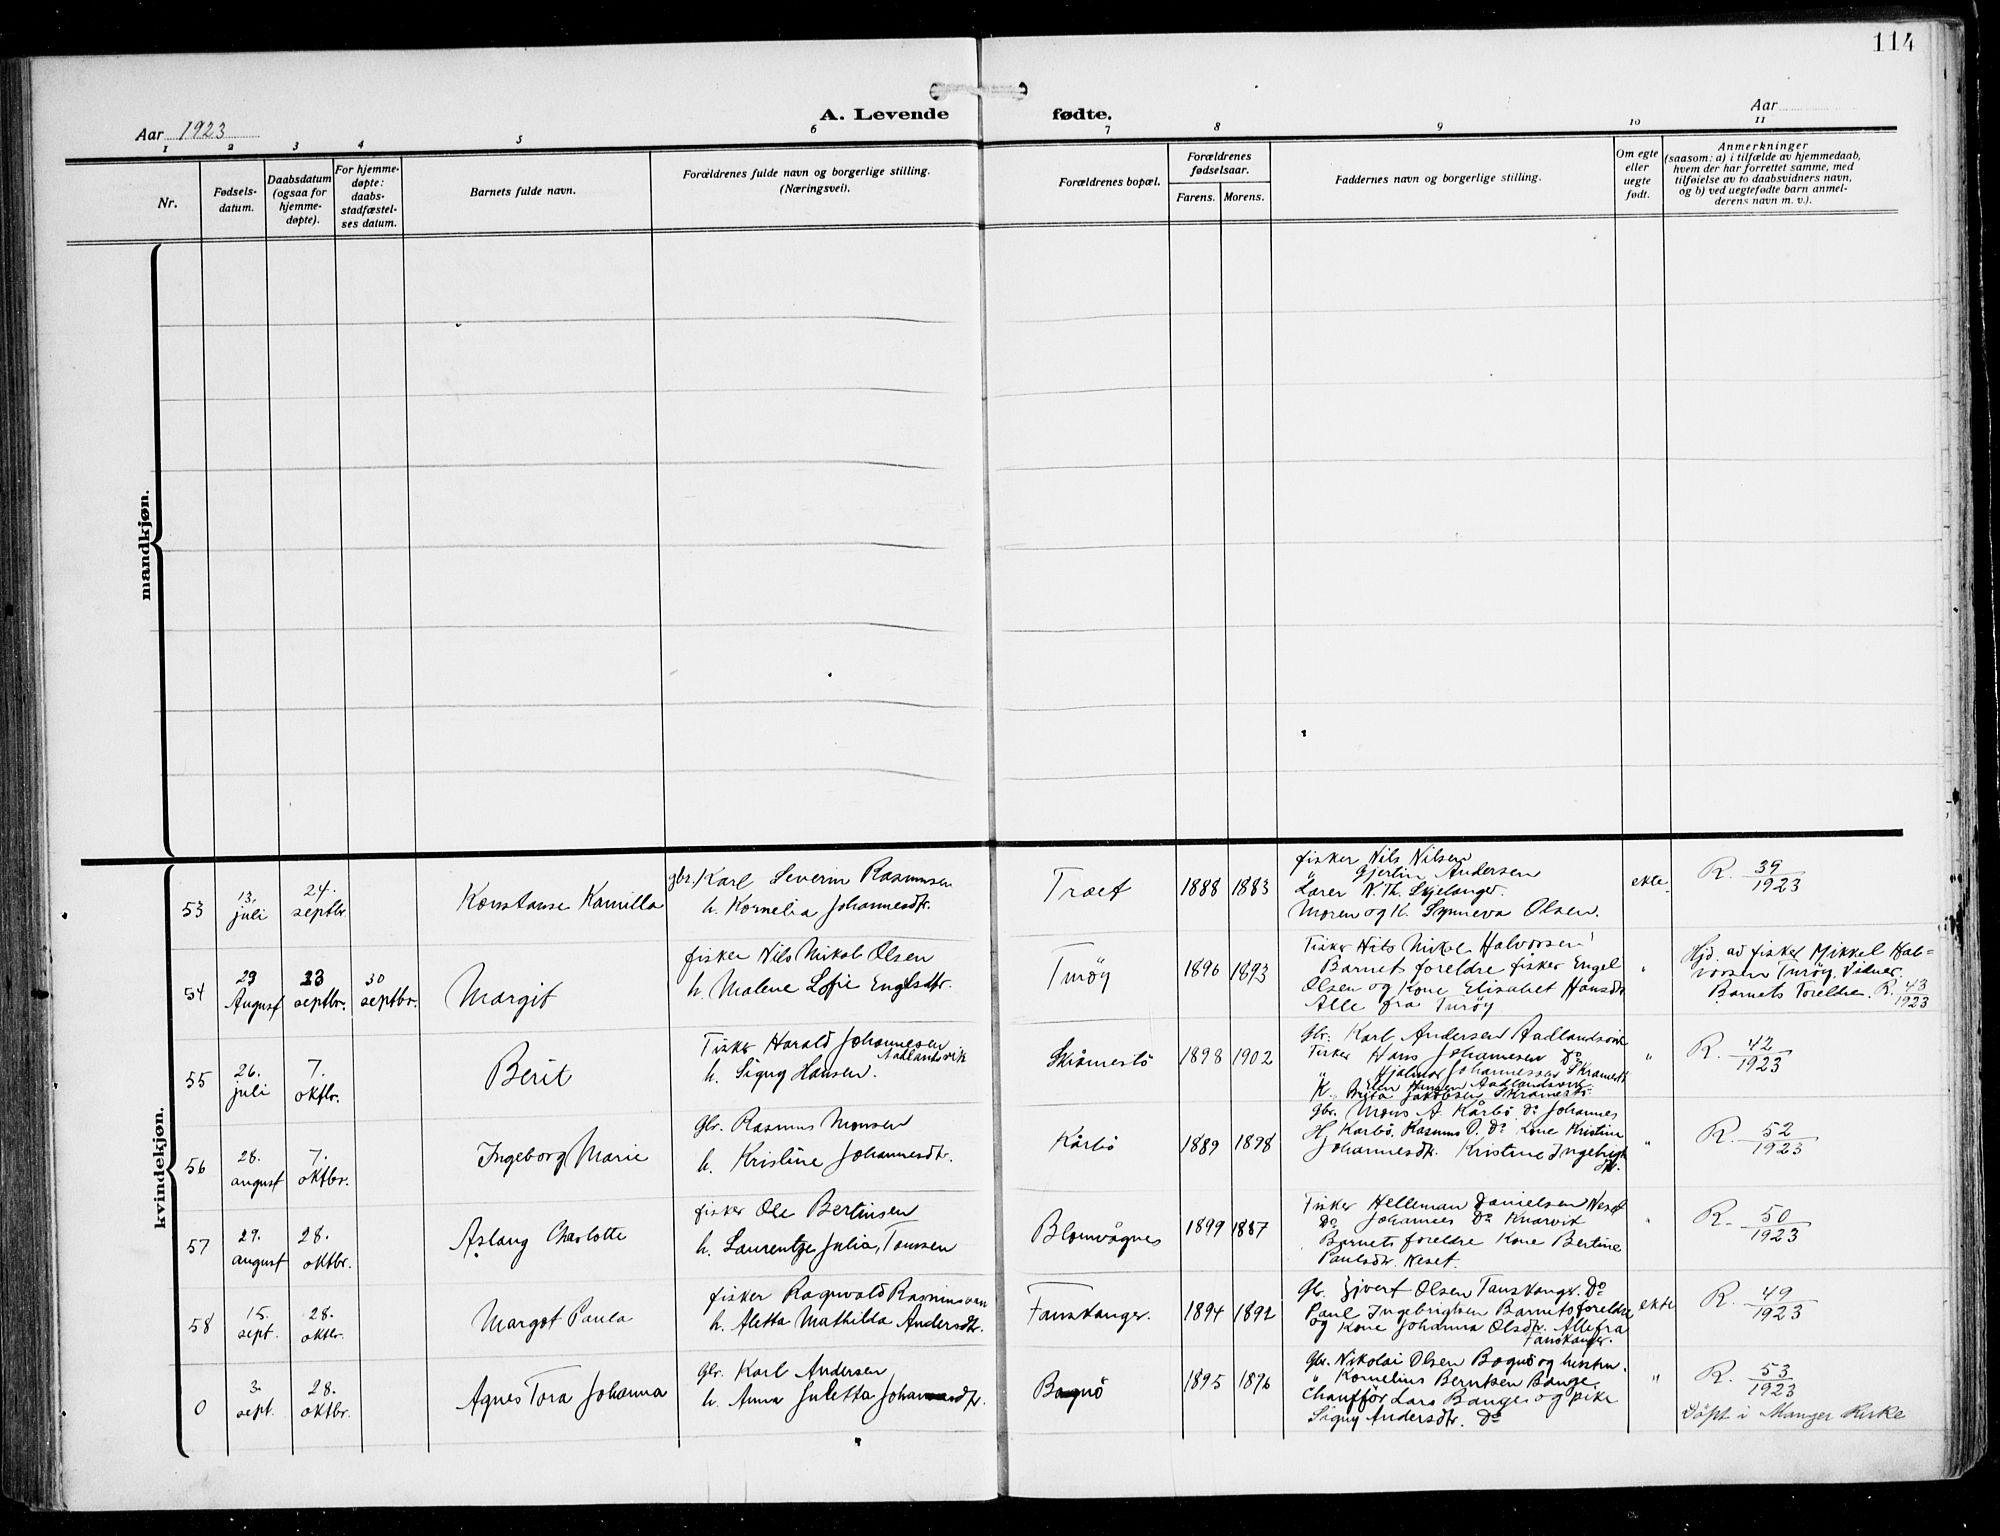 114
A. Levende fødte.
Aar 1923
Aar
1 2 3 4 5 6 7 8 9 10 11
Nr.
Fødsels-
datum.
Daabsdatum
(ogsaa for
hjemme-
døpte).
For hjemme-
døpte:
daabs-
stadfæstel-
ses datum.
Barnets fulde navn.
Forældrenes fulde navn og borgerlige stilling.
(Næringsvei).
Forældrenes bopæl.
Forældrenes
fødselsaar.
Farens. Morens.
Faddernes navn og borgerlige stilling.
Om egte
eller
uegte
født.
Anmerkninger
(saasom: a) i tilfælde av hjemmedaab,
hvem der har forrettet samme, med
tilføielse av to daabsvidners navn,
og b) ved uegtefødte barn anmel-
derens navn m. v.).
mandkjøn.
kvindekjøn.
53
13.
juli
24.
septbr.
Konstanse Kamilla
gbr. Karl Severin Rasmussen
h. Kornelia Johannesdtr.
Træet
1888 1883
fisker Nils Nilsen
" Gjertin Andersen
Lærer N. Th. Skjelanger
Moren og K. Synneva Olsen.
ekte.
R. 39/1923
54
29
August
23
septbr.
30
septbr.
Margit
fisker Nils Nikol Olsen
h. Malene Lofie Engelsdtr.
Turøy
1896 1893
Fisker Nils Nikol Halvorsen
Barnets foreldre fisker Engel
Olsen og Kone Elisabet Hansdtr
Alle fra Turøy
"
Hjd. av fisker Mikkel Hal-
vorsen Turøy. Vidner
Barnets Foreldre. R. 43/1923
55
26.
juli
7.
oktbr.
Berit
Fisker Harald Johannesen
Aadlandsvik
h. Signy Hansen.
Skråmestö
1898 1902
Gbr. Karl Andersen Aadlandsvik
Fisker Hans Johannesen Do
" Hjalmar Johannessen Skramestö
Ellen Hansen Aadlandsvik
K. Brita Jakobsen Skramestö
"
R. 42/1923
56
28.
august
7.
oktbr.
Ingeborg Marie
Gbr. Rasmus Monsen
h. Kristine Johannesdtr.
Kårbö
1889 1898
Gbr. Mons A. Kårbö, Do Johannes
Hj Karbö, Rasmus O. Do Kone Kristine
Johannesdtr. Kristine Ingebrigt
dtr.
"
R. 52/1923
57
29.
august
28.
oktbr.
Aslaug Charlotte
fisker Ole Bertinsen
h. Laurentze Julia Tomssen
Blomvågnes
1899 1887
Fisker Helleman Danielsen Neset
Do Johannes Do Knarvik
Barnets foreldre Kone Bertine
Paulsdtr. Neset.
"
R. 50/1923
58
15.
sept.
28.
oktbr.
Margot Paula
fisker Ragnvald Rasmussen
h. Aletta Mathilda Andersdtr.
Fanskanger.
1894 1892
Gbr. Sjvert Olsen Fanskanger. Do
Paul Ingebrigtsen Barnets foreldre
og Kone Johanna Olsdtr. Alle fra
Fanskanger.
ekte
R. 49/1923
0
3.
sept.
28.
oktbr.
Agnes Tora Johanna
Gbr. Karl Andersen
h. Anna Juletta Johannesdtr.
Bognö
1895 1896
Gbr. Nikolai Olsen Bognö og hustru.
" Kornelius Berntsen Bauge
Chauffør Lars Bauge og pike
Signy Andersdtr. Do
"
R. 53/1923
Döpt i Manger Kirke